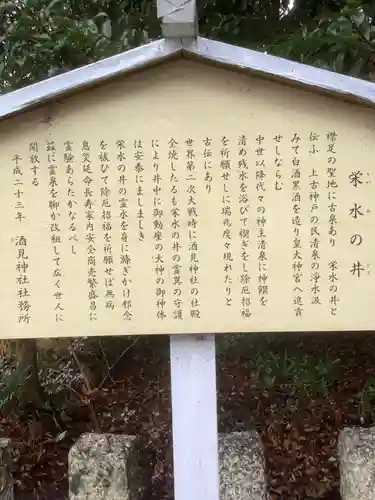 栄水の井
さかみのいど
襟足の聖地に古泉あり 栄水の井と
伝ふ 上古神戸の民清泉の浄水汲
みて白酒黒酒を造り皇大神宮へ進貢
せしならむ
中世以降代々の神主清泉に神饌を
清め残水を浴びて禊ぎをし除厄招福
を祈願せしに瑞兆度々現れたりと
古伝にあり
世界第二次大戦時に酒見神社の社殿
全焼したるも栄水の井の霊異の守護
により井中に御動座の大神の御神体
は安泰にましましき
栄水の井の霊水を身に漑ぎかけ邪念
を祓ひて除厄招福を祈願せば無病
息災延命長寿家内安全商売繁盛呂に
霊験あらたかなるべし
茲に霊泉を聊か改組して広く世人に
開放する
平成二十三年 酒見神社社務所